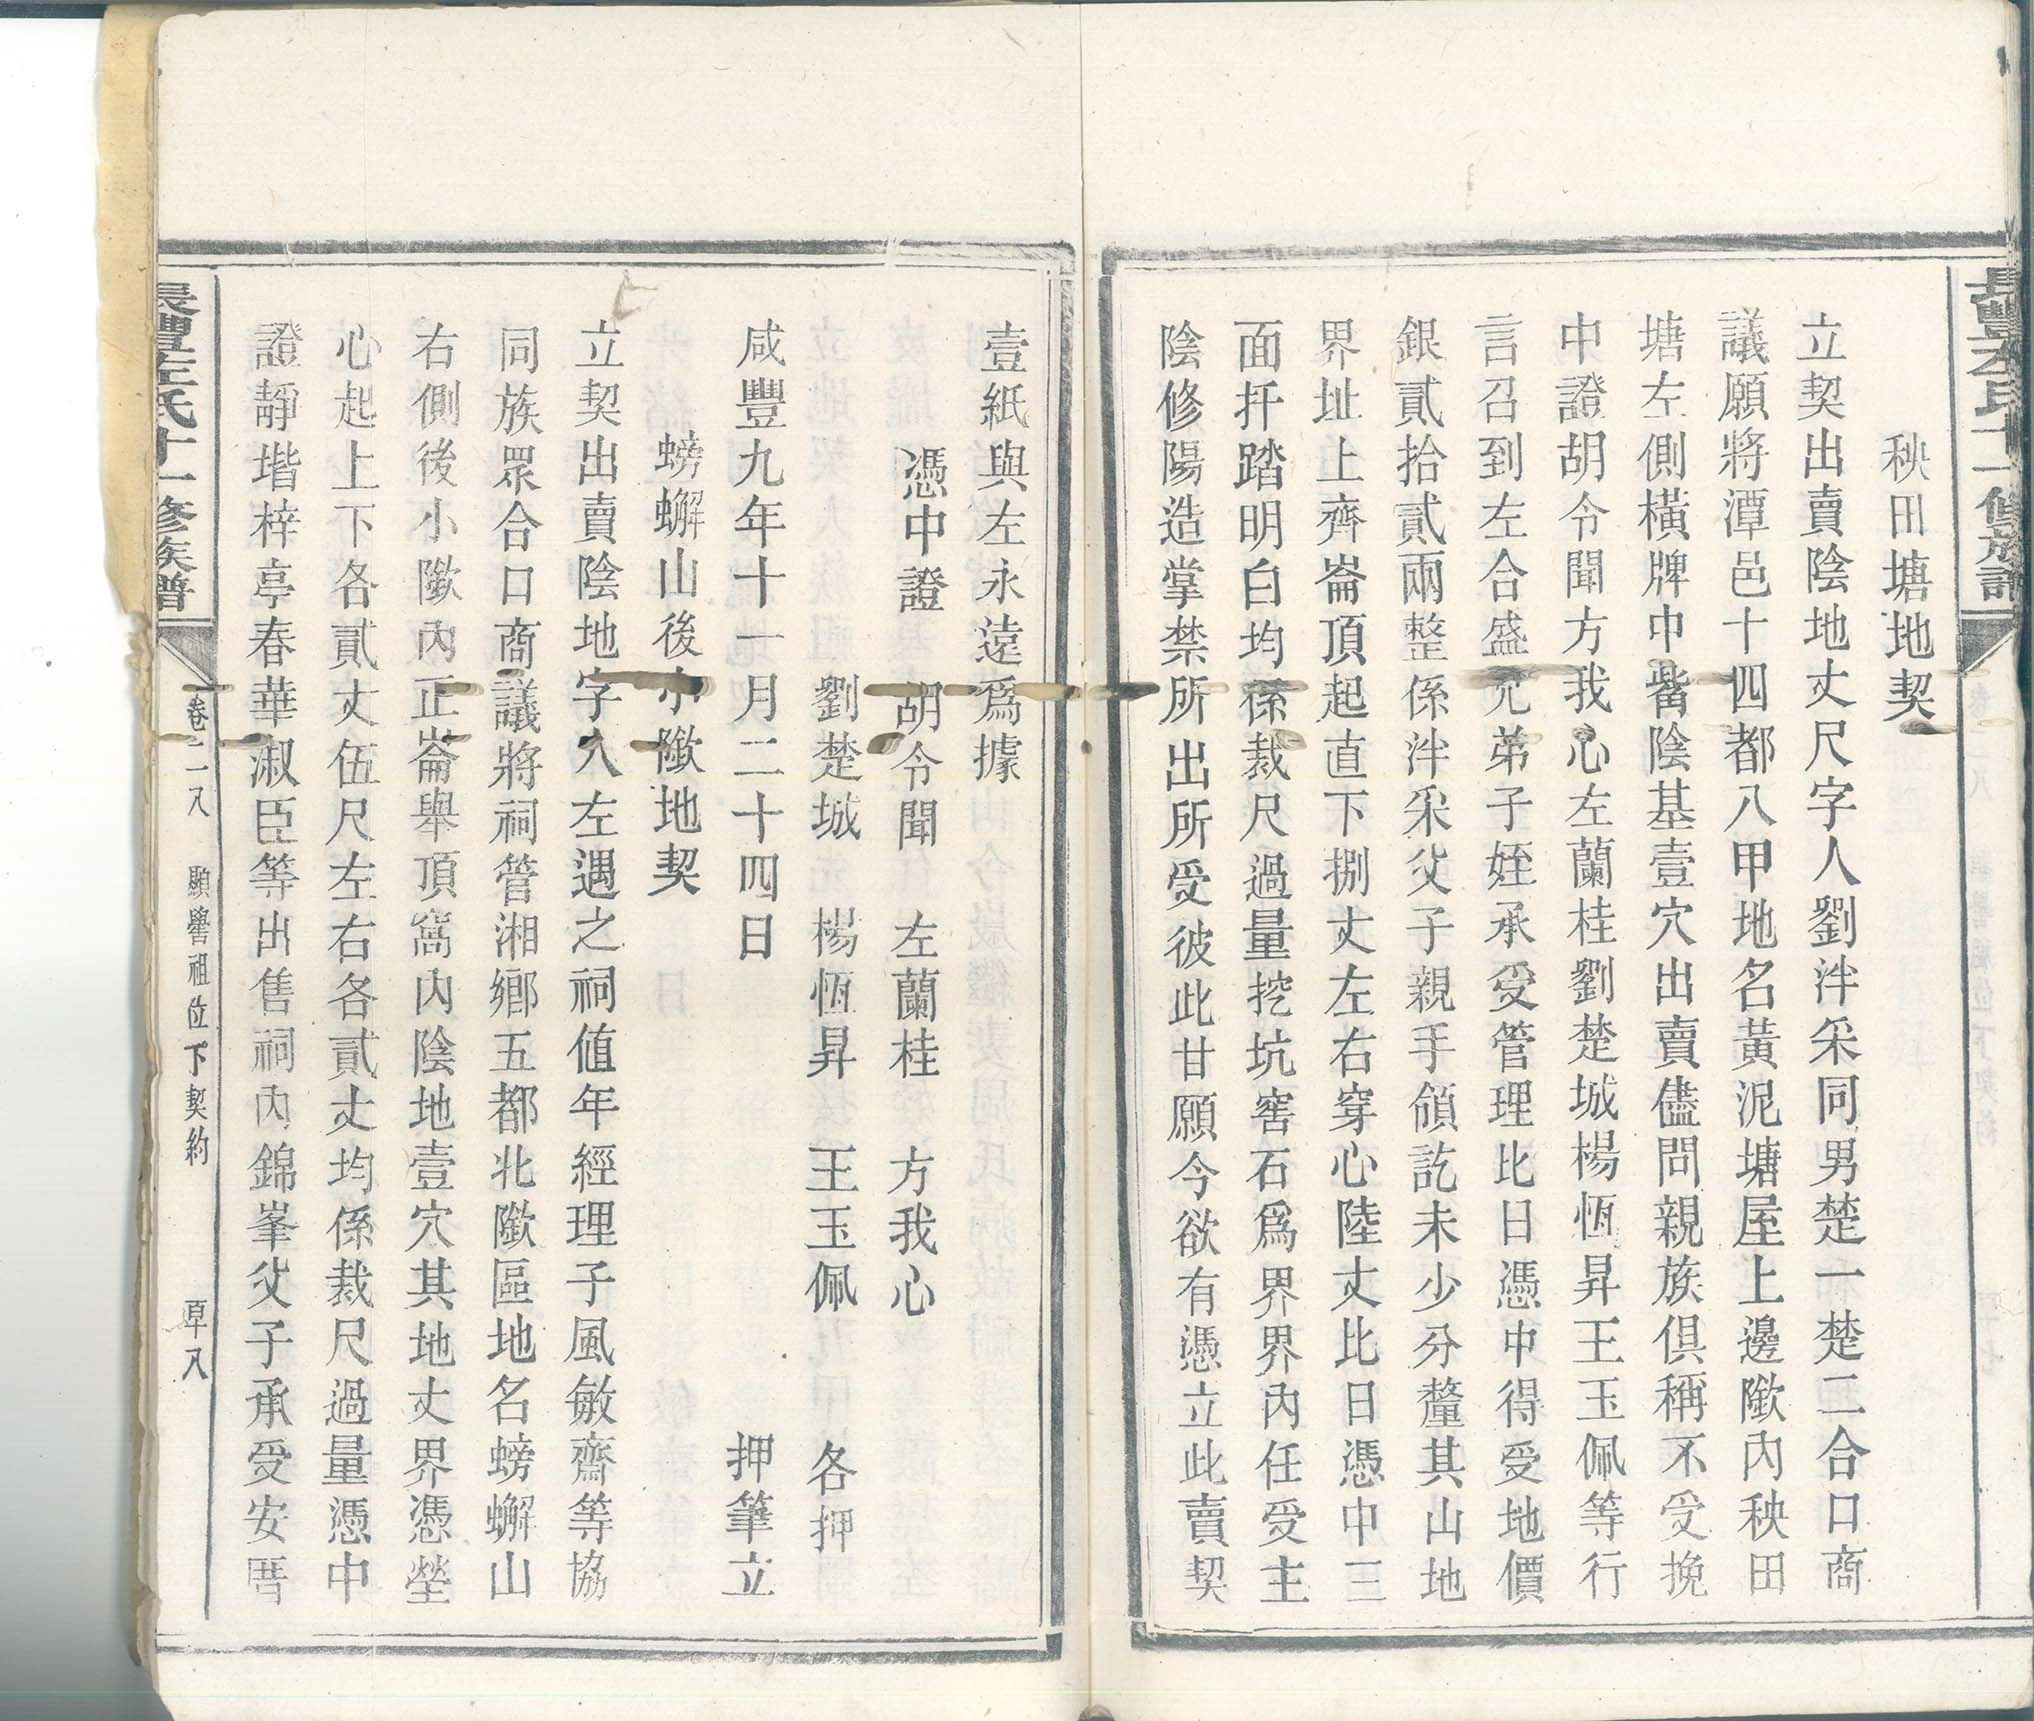 長豐左氏十一修族譜
秧田塘地契
立契出賣陰地丈尺字人劉泮采同男楚一楚二合口商
議願將潭邑十四都八甲地名黃泥塘屋上邊隞內秧田
塘左側橫牌中觜陰基壹穴出賣儘問親族俱稱不受挽
中證胡令聞方我心左蘭桂劉楚城楊恆昇王玉佩等行
言召到左合盛兄弟子姪承受管理比日憑中得受地價
銀貳拾貳兩整係泮采父子親手領訖未少分釐其山地
界址上齊崙頂起直下捌丈左右穿心陸丈比日憑中三
面扦踏明白均係裁尺過量挖坑窖石爲界界內任受主
陰修陽造掌禁所出所受彼此甘願今欲有憑立此賣契
壹紙與左永遠爲據
憑中證 胡令聞 左蘭桂 方我心
劉楚城 楊恆昇 王玉佩 各押
咸豐九年十一月二十四日 押筆立
螃蠏山後小隞地契
立契出賣陰地字人左遇之祠值年經理子風敏齋等協
同族眾合口商議將祠管湘鄉五都北隞區地名螃蠏山
右側後小隞內正崙舉頂窩內陰地壹穴其地丈界憑塋
心起上下各貳丈伍尺左右各貳丈均係裁尺過量憑中
證靜堦梓亭春華淑臣等出售祠內錦峯父子承受安厝
長豐左氏十一修族譜
卷二八 顯譽祖位下契約